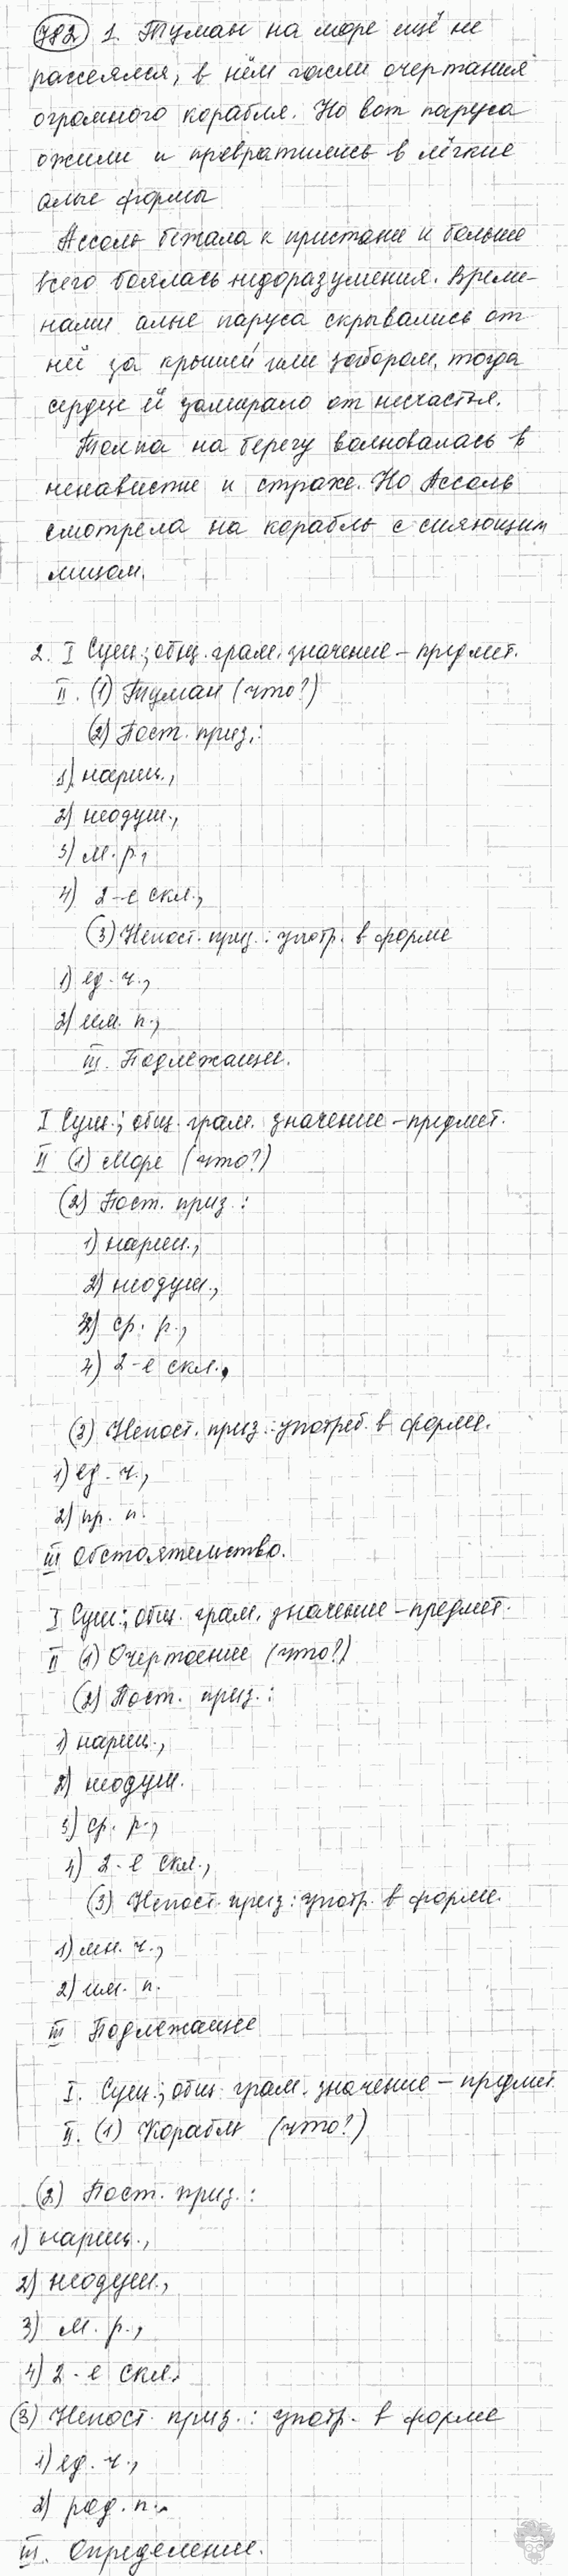 782 1. Туман на море ещё не
рассеялся, в нём гасли очертания
огромного корабля. Но вот паруса
ожили и превратились в лёгкие
алые формы
Ассоль бежала к пристани и больше
всего боялась недоразумения. Време-
нами алые паруса скрывались от
неё за крышей или забором, тогда
сердце её замирало от несчастья.
Толпа на берегу волновалась в
ненависти и страхе. Но Ассоль
смотрела на корабль с сияющим
лицом.
2. I Сущ.; общ. грам. значение – предмет.
II. (1) Туман (что?)
(2) Пост. приз.:
1) нариц.,
2) неодуш.,
3) м. р.,
4) 2-е скл.,
(3) Непост. приз.: употр. в форме
1) ед. ч.,
2) им. п.,
III. Подлежащее.
I Сущ.; общ. грам. значение – предмет.
II (1) Море (что?)
(2) Пост. приз.:
1) нариц.,
2) неодуш.,
3) ср. р.,
4) 2-е скл.,
(3) Непост. приз.: употреб. в форме.
1) ед. ч.,
2) пр. п.
III Обстоятельство.
I Сущ.; общ. грам. значение – предмет.
II (1) Очертание (что?)
(2) Пост. приз.:
1) нариц.,
2) неодуш.
3) ср. р.,
4) 2-е скл.,
(3) Непост. приз.: употр. в форме.
1) мн. ч.,
2) им. п.
III Подлежащее
I. Сущ.; общ. грам. значение – предмет
II. (1) Корабль (что?)
(2) Пост. приз.:
1) нариц.,
2) неодуш.,
3) м. р.,
4) 2-е скл.
(3) Непост. приз.: употр. в форме
1) ед. ч.,
2) род. п.
III. Определение.